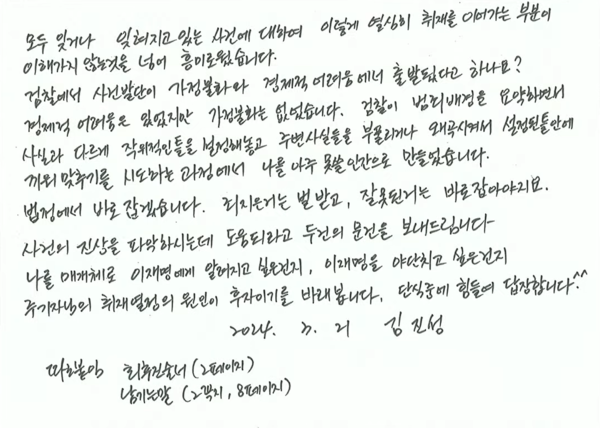 모두 잊거나 잊혀지고 있는 사건에 대하여 이렇게 열심히 취재를 이어가는 부분이
이해가지 않는것을 넘어 흥미로웠습니다.
검찰에서 사건발단이 가정불화와 경제적 어려움에서 출발됬다고 하나요?
경제적 어려움은 있었지만 가정불화는 없었습니다. 검찰이 범죄배경을 요약하면서
사실과 다르게 작위적인틀을 설정해놓고 주변사실들을 부풀리거나 왜곡시켜서 설정된틀안에
끼워 맞추기를 시도하는 과정에서 나를 아주 못쓸 인간으로 만들었습니다.
법정에서 바로 잡겠습니다. 죄지은거는 벌 받고, 잘못된거는 바로잡아야지요.
사건의 진상을 파악하시는데 도움되라고 두건의 문건을 보내드립니다-
나를 매개체로 이재명에게 알려지고 싶은건지, 이재명을 야단치고 싶은건지
주기자님의 취재열정의 원인이 후자이기를 바래봅니다. 단식중에 힘들여 답장합니다.^^
2024. 3. 21 김진성
따로붙임 최후진술서 (2페이지)
남기는말 (2꼭지, 8페이지)